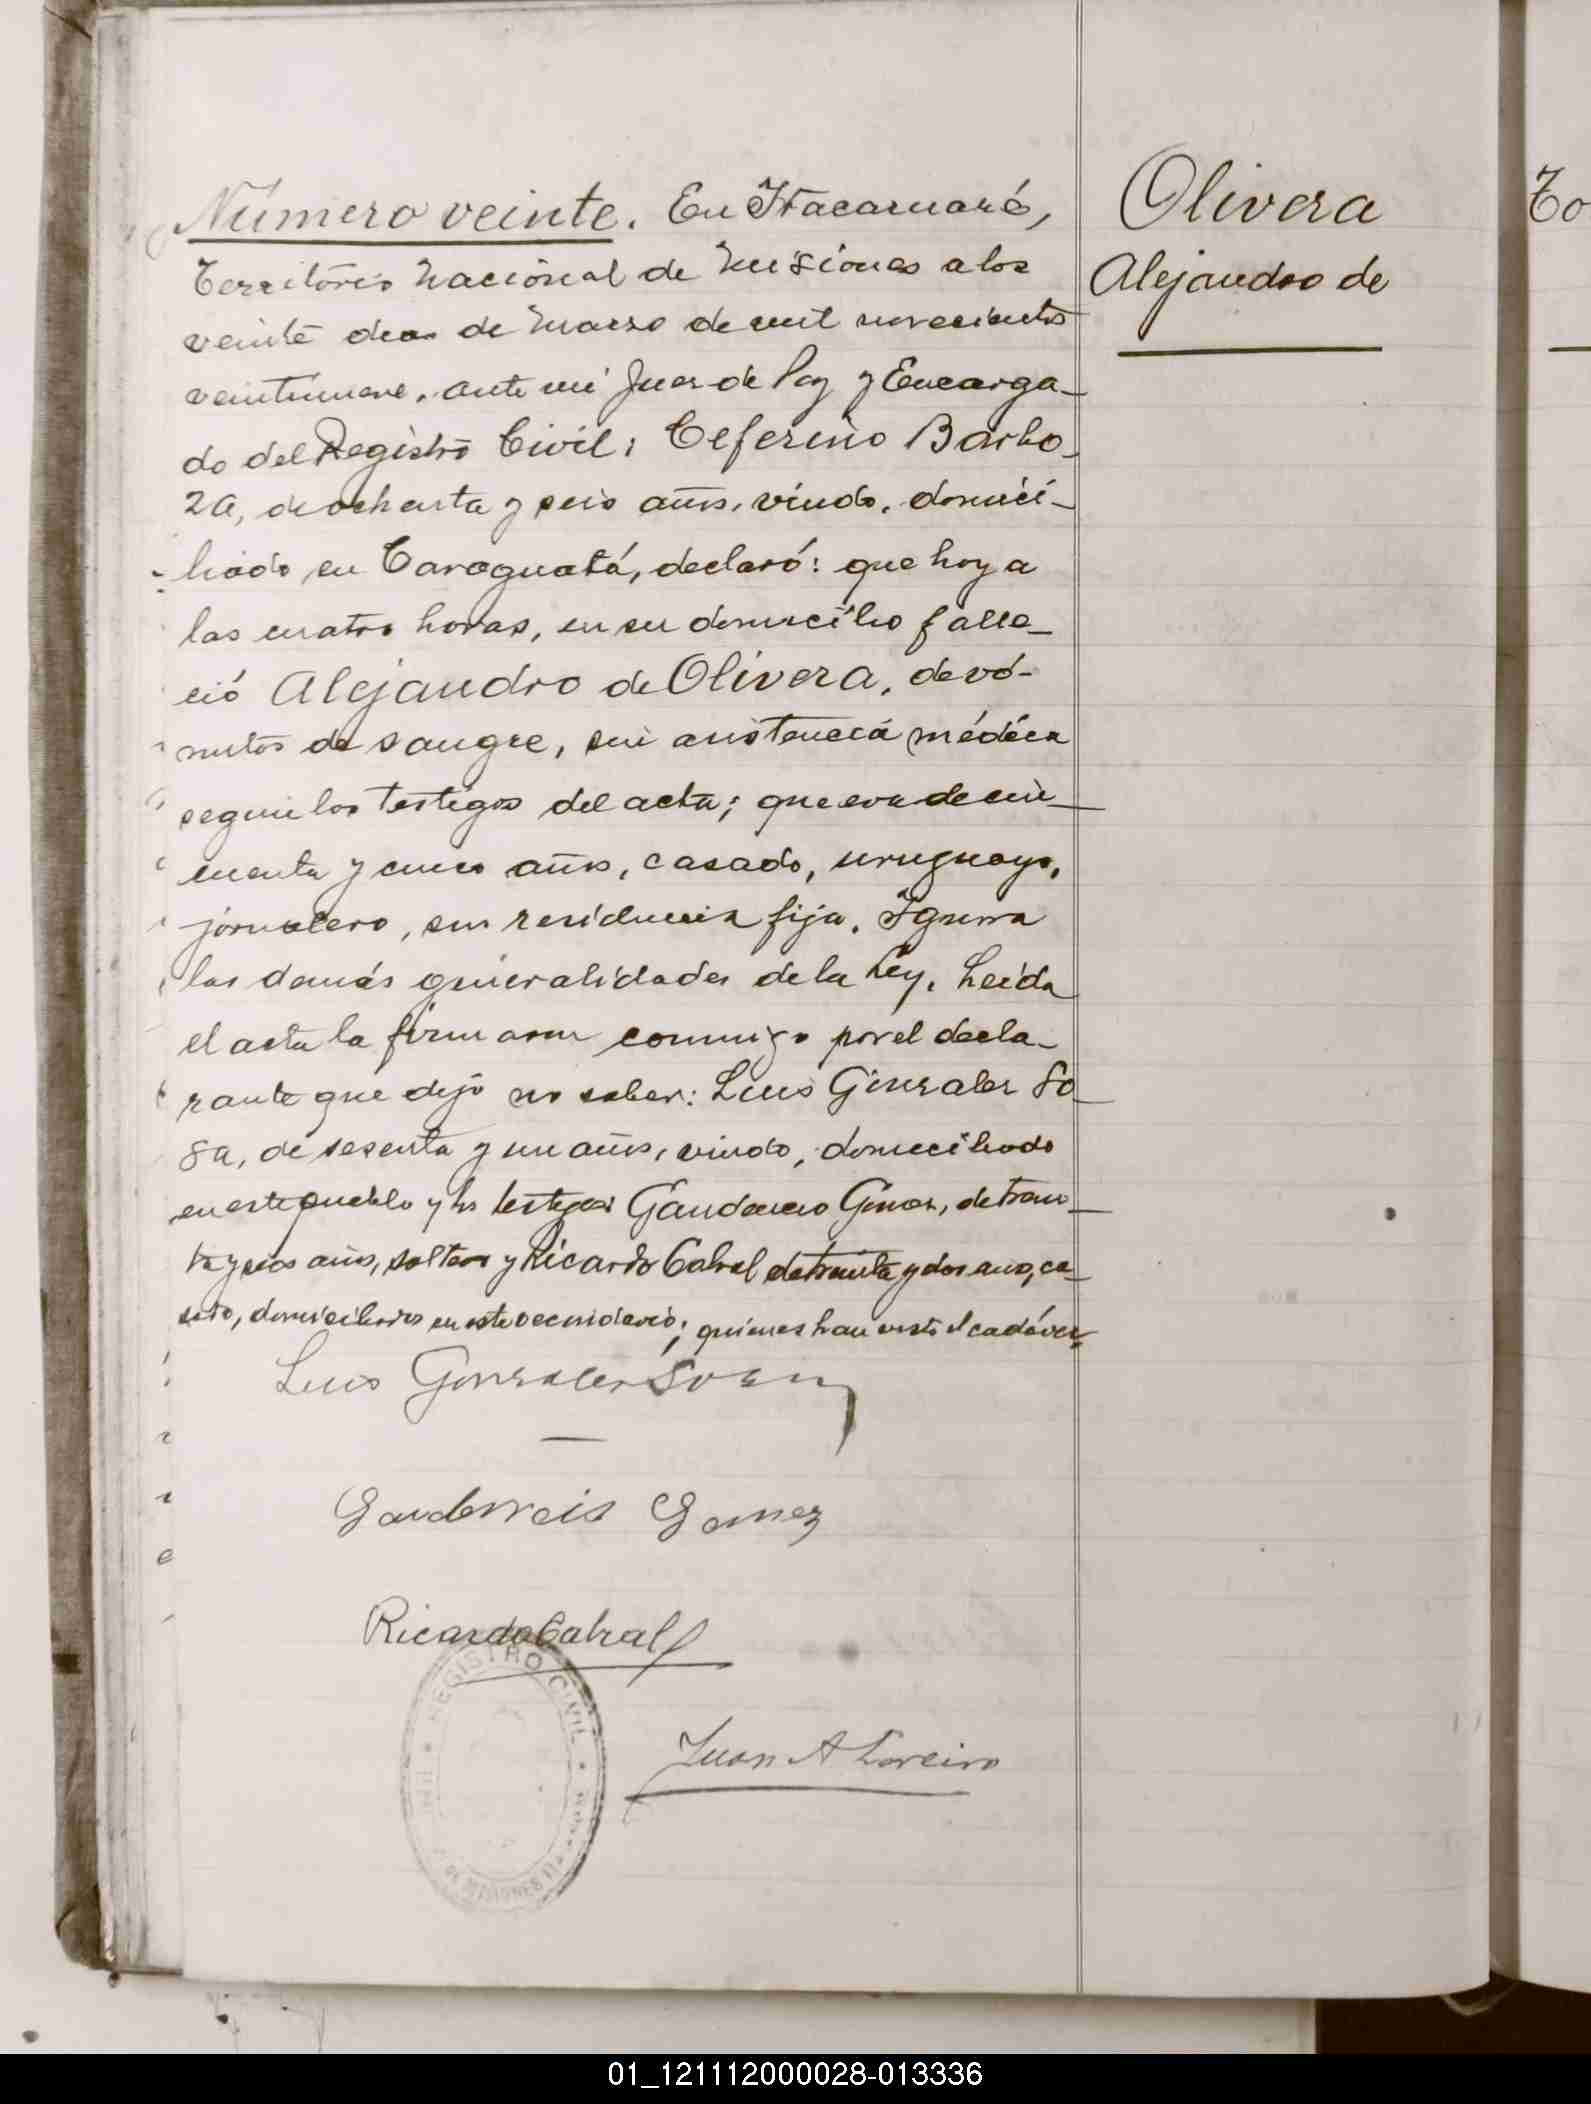 Número veinte. En Itacaruaré,
Territorio Nacional de Misiones a los
veinte dias de Marzo de mil novecientos
veintinueve, ante mi Juez de Paz y Encarga-
do del Registro Civil: Ceferino Barbo-
za, de ochenta y seis años, viudo, domici-
liado en Caraguatá, declaró: que hoy a
las cuatro horas, en su domicilio falle-
ció Alejandro de Olivera, de vó-
mitos de sangre, sin asistencia médica
segun los testigos del acta; que era de cin-
cuenta y cinco años, casado, uruguayo,
jornalero, sin residencia fija. Ignora
las demás generalidades de la Ley. Leida
el acta la firmaron conmigo por el decla-
rante que dijo no saber: Luis Gonzalez So-
sa, de sesenta y un años, viudo, domiciliado
en este pueblo y los testigos Gaudencio Gómez, de trein-
ta y seis años, soltero y Ricardo Cabral de treinta y dos años, ca-
sado, domiciliados en este vecindario; quienes han visto el cadáver.
Luis Gonzalez Sosa
Gaudencio Gomez
Ricardo Cabral
REGISTRO CIVIL
DE MISIONES
Juan A Loreiro
Olivera
Alejandro de
To
01_121112000028-013336